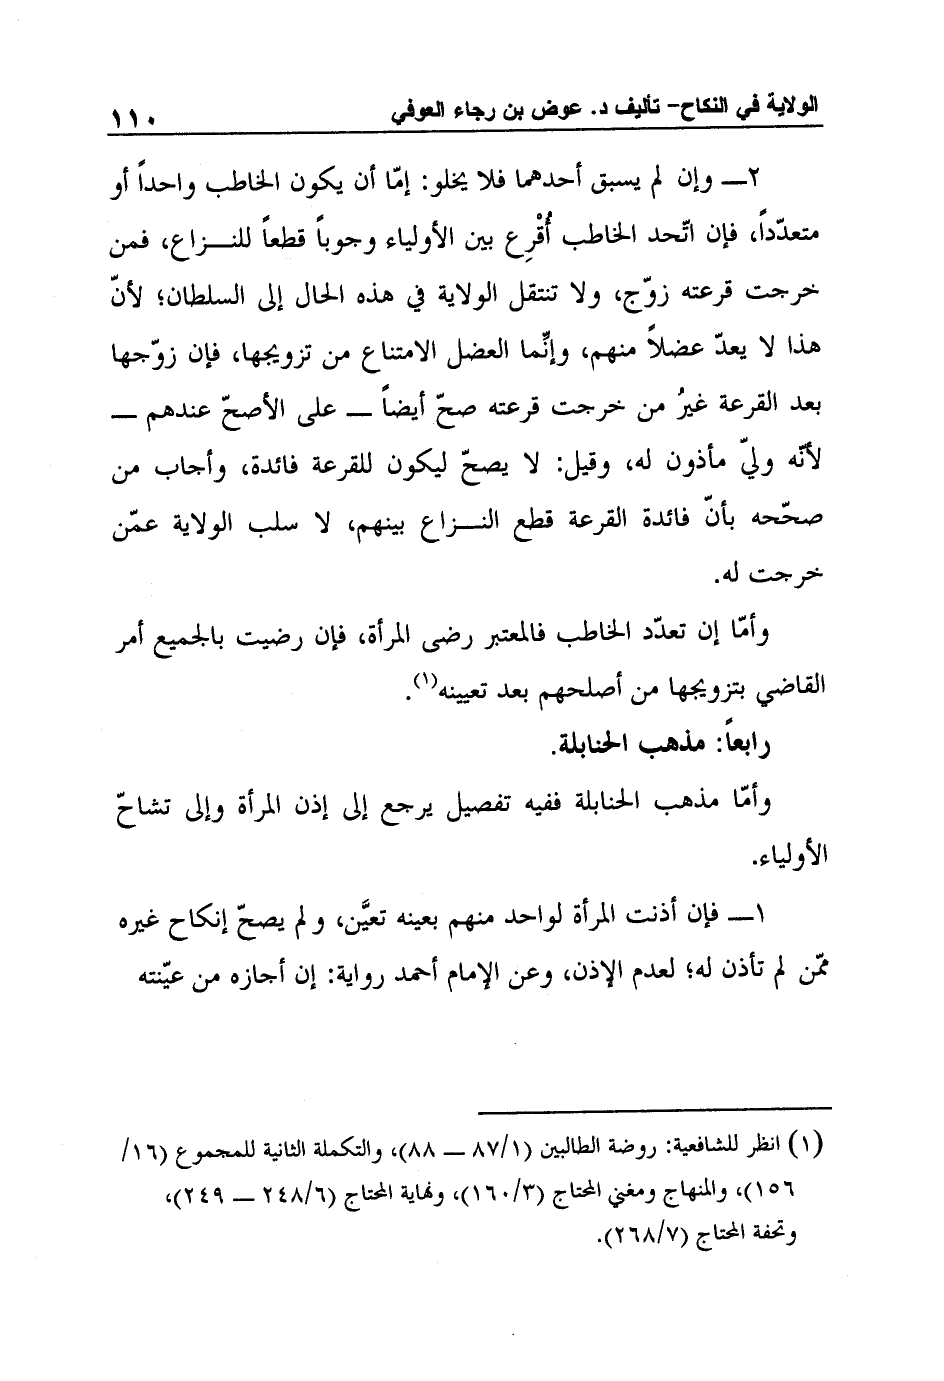 الولاية في النكاح- تأليف د. عوض بن رجاء العوفي ١١٠
٢ــ وإن لم يسبق أحدهما فلا يخلو: إمّا أن يكون الخاطب واحداً أو
متعدّداً، فإن اتّحد الخاطب أُقْرِع بين الأولياء وجوباً قطعاً للنـــزاع، فمن
خرجت قرعته زوّج، ولا تنتقل الولاية في هذه الحال إلى السلطان؛ لأنّ
هذا لا يعدّ عضلاً منهم، وإنَّما العضل الامتناع من تزويجها، فإن زوّجها
بعد القرعة غيرُ من خرجت قرعته صحّ أيضاً ــ على الأصحّ عندهم ــ
لأنّه وليّ مأذون له، وقيل: لا يصحّ ليكون للقرعة فائدة، وأجاب من
صحّحه بأنّ فائدة القرعة قطع النـــزاع بينهم، لا سلب الولاية عمّن
خرجت له.
وأمّا إن تعدّد الخاطب فالمعتبر رضى المرأة، فإن رضيت بالجميع أمر
القاضي بتزويجها من أصلحهم بعد تعيينه(١).
رابعاً: مذهب الحنابلة.
وأمّا مذهب الحنابلة ففيه تفصيل يرجع إلى إذن المرأة وإلى تشاحّ
الأولياء.
١ــ فإن أذنت المرأة لواحد منهم بعينه تعيَّن، ولم يصحّ إنكاح غيره
ممّن لم تأذن له؛ لعدم الإذن، وعن الإمام أحمد رواية: إن أجازه من عيّنته
(١) انظر للشافعية: روضة الطالبين (٨٧/١ ــ ٨٨)، والتكملة الثانية للمجموع (١٦/
١٥٦)، والمنهاج ومغني المحتاج (١٦٠/٣)، ونهاية المحتاج (٢٤٨/٦ ــ ٢٤٩)،
وتحفة المحتاج (٢٦٨/٧).